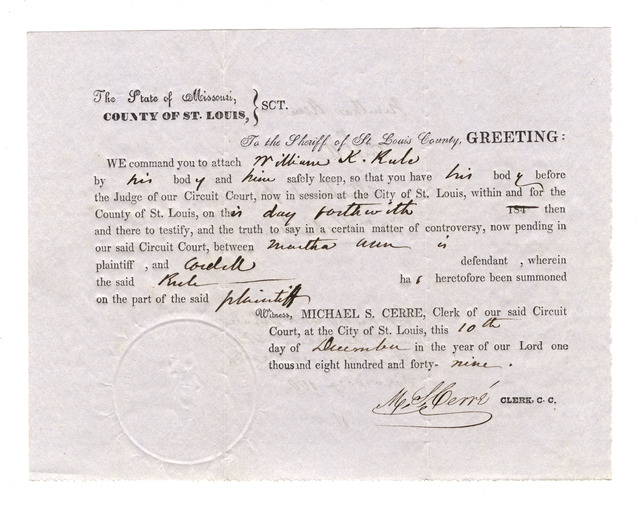 The State of Missouri, } SCT.
COUNTY OF ST. LOUIS,
To the Sheriff of St. Louis County, GREETING:
WE command you to attach William K. Rule
by his body and him safely keep, so that you have his body before
the Judge of our Circuit Court, now in session at the City of St. Louis, within and for the
County of St. Louis, on this day forthwith 184 then
and there to testify, and the truth to say in a certain matter of controversy, now pending in
our said Circuit Court, between Martha Ann is
plaintiff , and Cordell defendant , wherein
the said Rule has heretofore been summoned
on the part of the said plaintiff
Witness, MICHAEL S. CERRE, Clerk of our said Circuit
Court, at the City of St. Louis, this 10th
day of December in the year of our Lord one
thousand eight hundred and forty- nine.
M. S. Cerré CLERK, C. C.